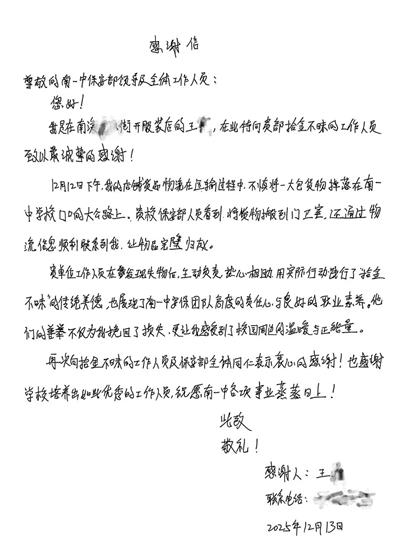 感谢信
尊敬的南一中保安部领导及全体工作人员：
您好！
我是在南 街开服装店的王 ，在此特向贵部拾金不昧的工作人员
致以最诚挚的感谢！
12月12日下午，我的店铺货品物流在运输过程中，不慎将一大包货物掉落在南一
中学校门口的大马路上。贵校保安部人员看到将货物搬到门卫室，还通过物
流信息顺利联系到我，让物品完璧归赵。
贵单位工作人员在发现失物后，主动负责、热心相助，用实际行动践行了“拾金
不昧”的传统美德，也展现了南一中安保团队高度的责任心与良好的职业素养。他
们的善举不仅为我挽回了损失，更让我感受到了校园周边的温暖与正能量。
再次向拾金不昧的工作人员及保安部全体同仁表示衷心的感谢！也感谢
学校培养出如此优秀的工作人员，祝愿南一中各项事业蒸蒸日上！
此致
敬礼！
感谢人：王
联系电话：
2025年12月13日